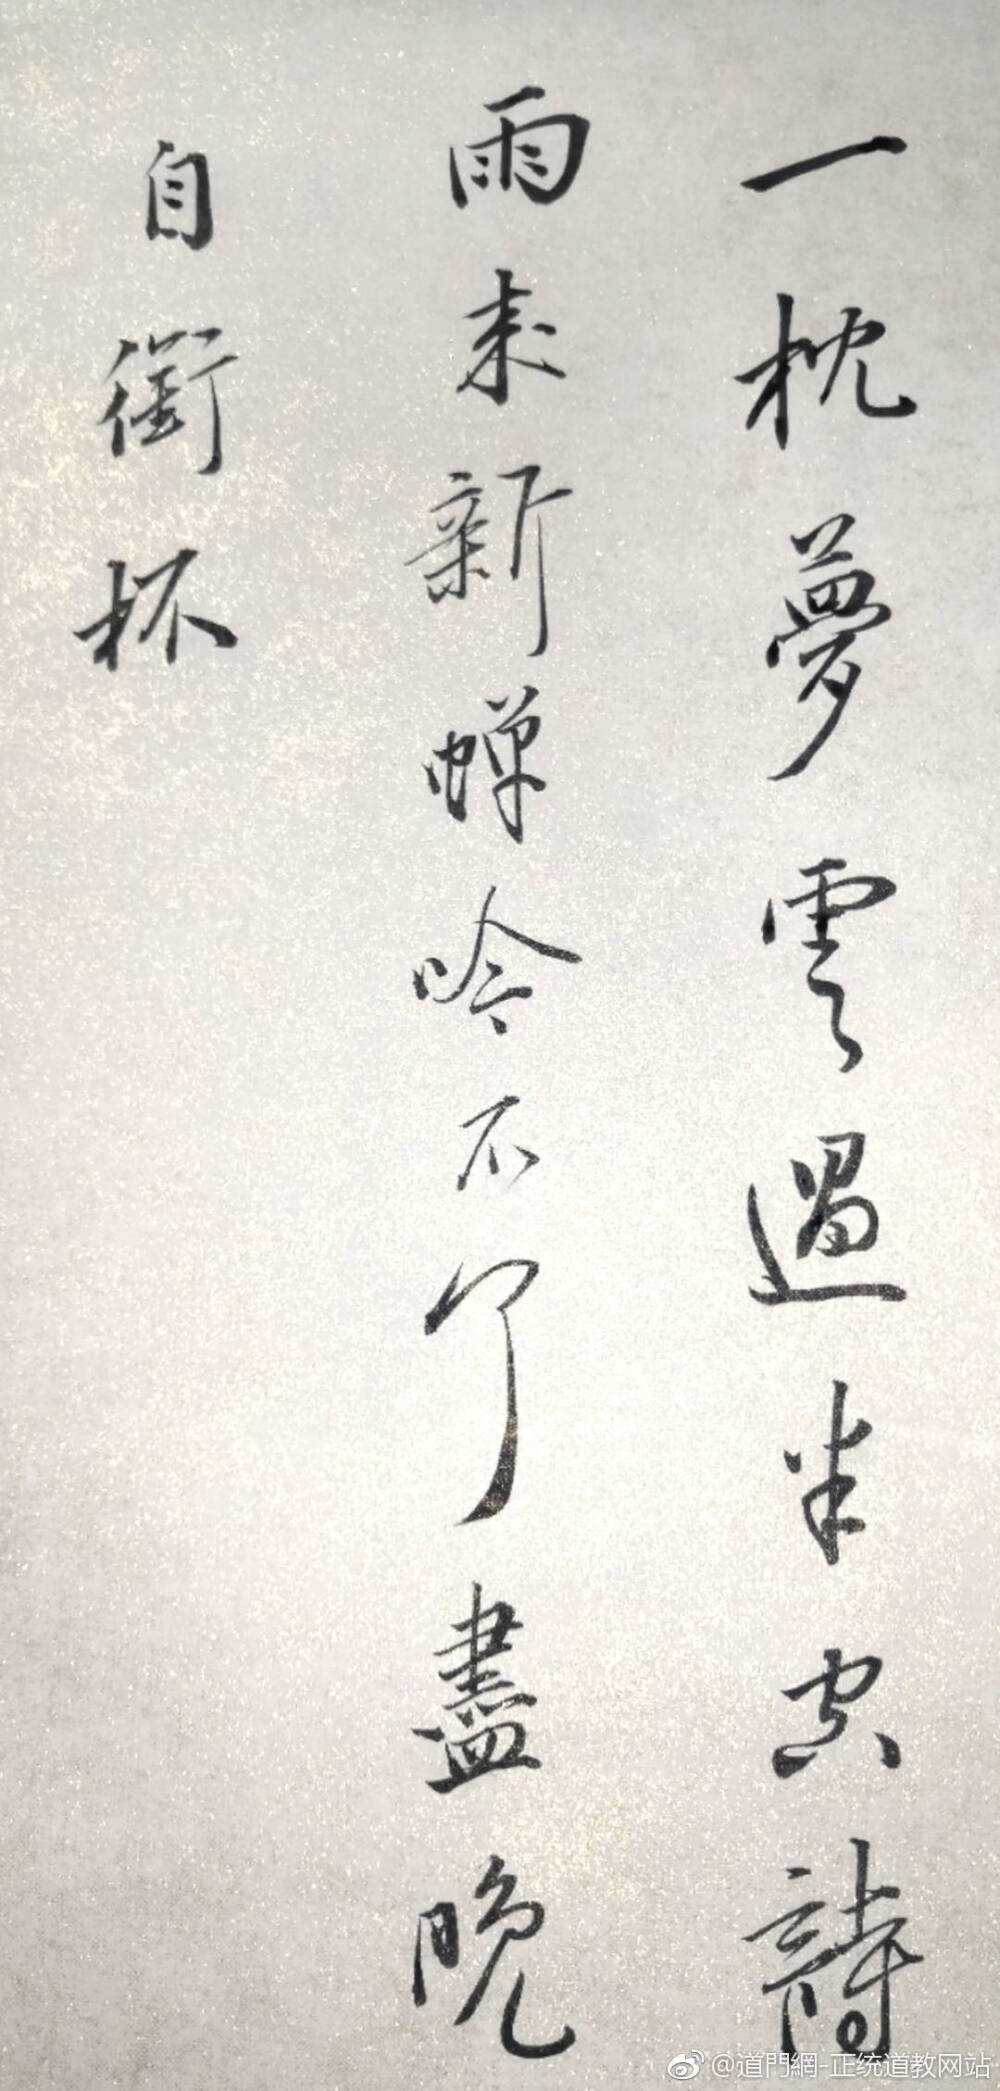 一枕夢雲過半窗詩
雨來新蟬吟不了盡晚
自銜杯
@道門網-正统道教网站